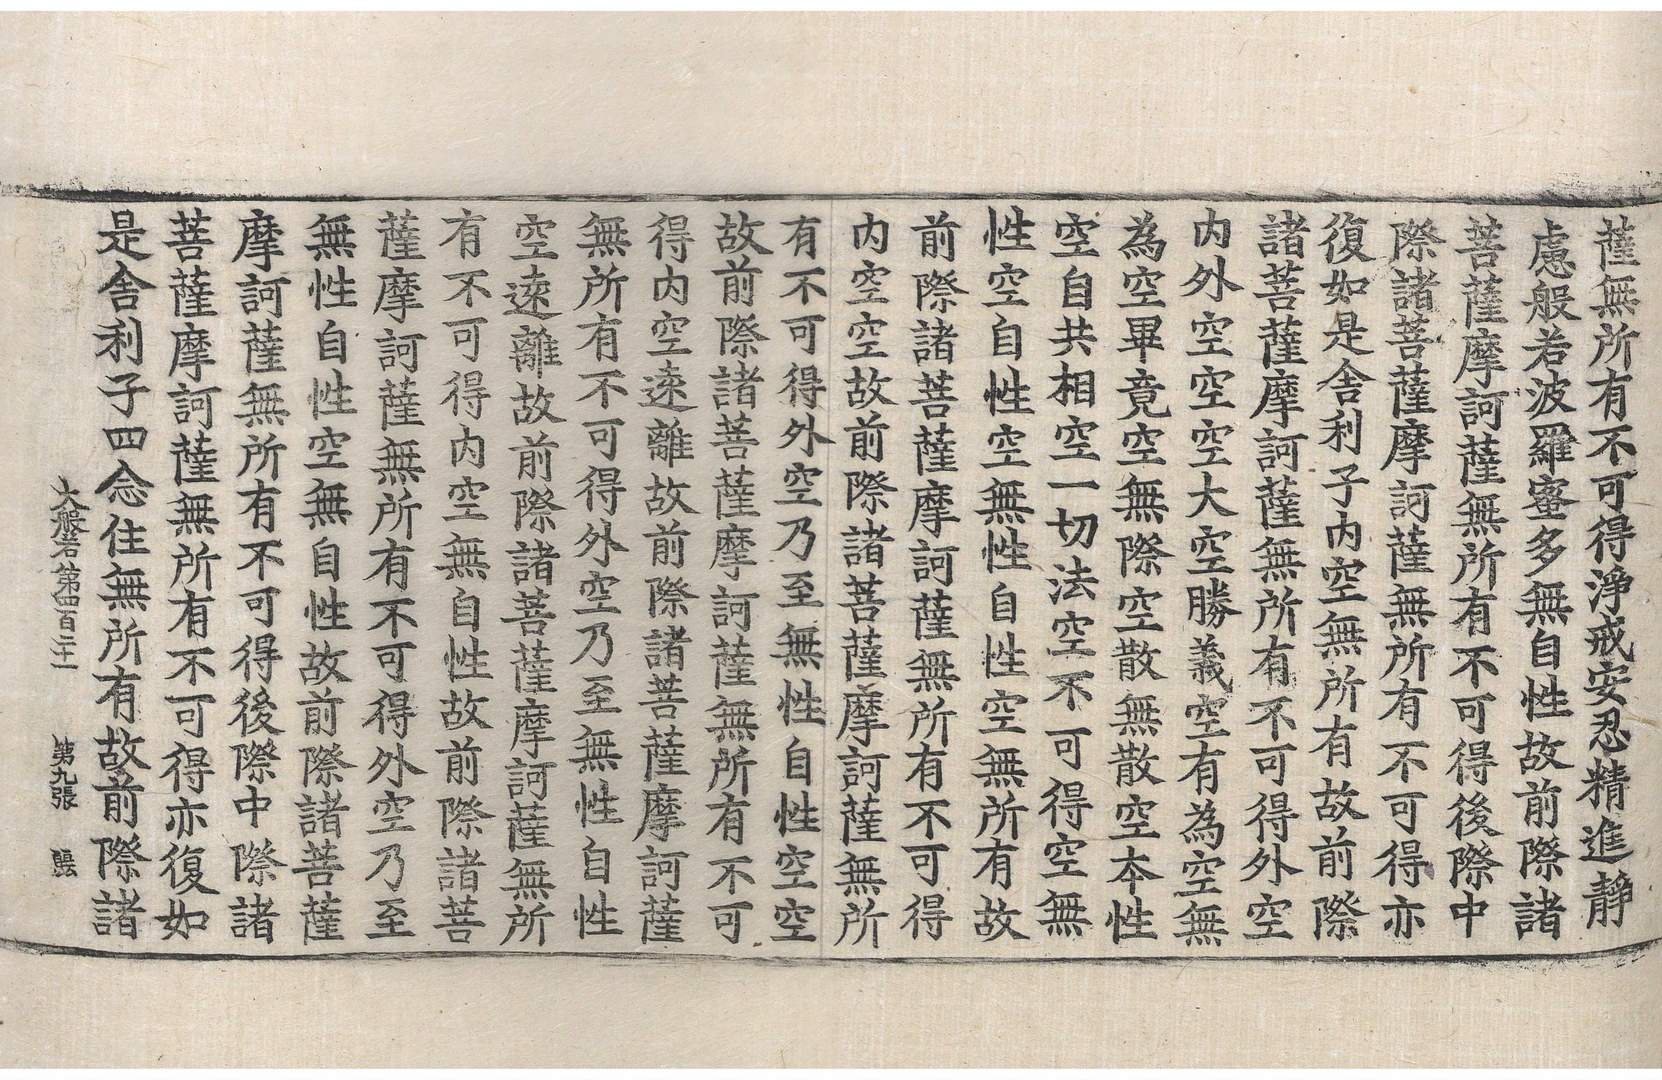 薩無所有不可得淨戒安忍精進靜
慮般若波羅蜜多無自性故前際諸
菩薩摩訶薩無所有不可得後際中
際諸菩薩摩訶薩無所有不可得亦
復如是舍利子内空無所有故前際
諸菩薩摩訶薩無所有不可得外空
内外空空空大空勝義空有為空無
為空畢竟空無際空散無散空本性
空自共相空一切法空不可得空無
性空自性空無性自性空無所有故
前際諸菩薩摩訶薩無所有不可得
内空空故前際諸菩薩摩訶薩無所
有不可得外空乃至無性自性空空
故前際諸菩薩摩訶薩無所有不可
得内空遠離故前際諸菩薩摩訶薩
無所有不可得外空乃至無性自性
空遠離故前際諸菩薩摩訶薩無所
有不可得内空無自性故前際諸菩
薩摩訶薩無所有不可得外空乃至
無性自性空無自性故前際諸菩薩
摩訶薩無所有不可得後際中際諸
菩薩摩訶薩無所有不可得亦復如
是舍利子四念住無所有故前際諸
大般若第四百二十一 第九張 麗